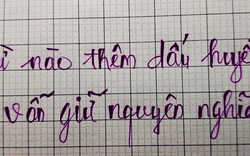 ì nào thêm dấu huyề
vẫn giữ nguyên nghĩa